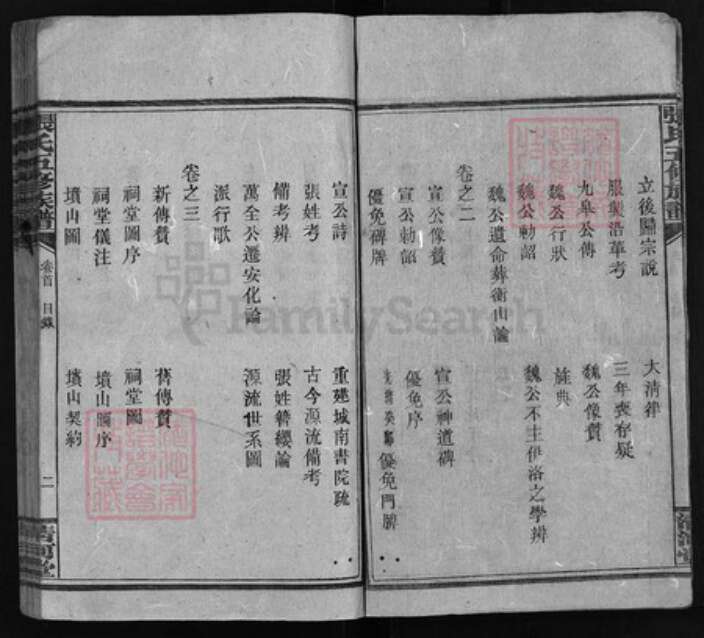 立後關宗說　大清律
服製沿革考　三年喪存疑
九皋公傳　魏公像贊
魏公行狀　旌典
魏公勅詔　魏公不主伊洛之學辨
魏公遺命葬衡山論
卷之二
宣公像贊　宣公神道碑
宣公勅詔　優免序
優免碑牌　優免門牌
宣公詩　重建城南書院疏
張姓考　古今源流備考
備考辨　張姓簪纓論
萬全公遷安化論　源流世系圖
派行歌
卷之三
新傳贊　舊傳贊
祠堂圖序　祠堂圖
祠堂儀注　墳山圖序
墳山圖　墳山契約
張氏五修族譜　卷首　目錄　二　清河堂
FamilySearch